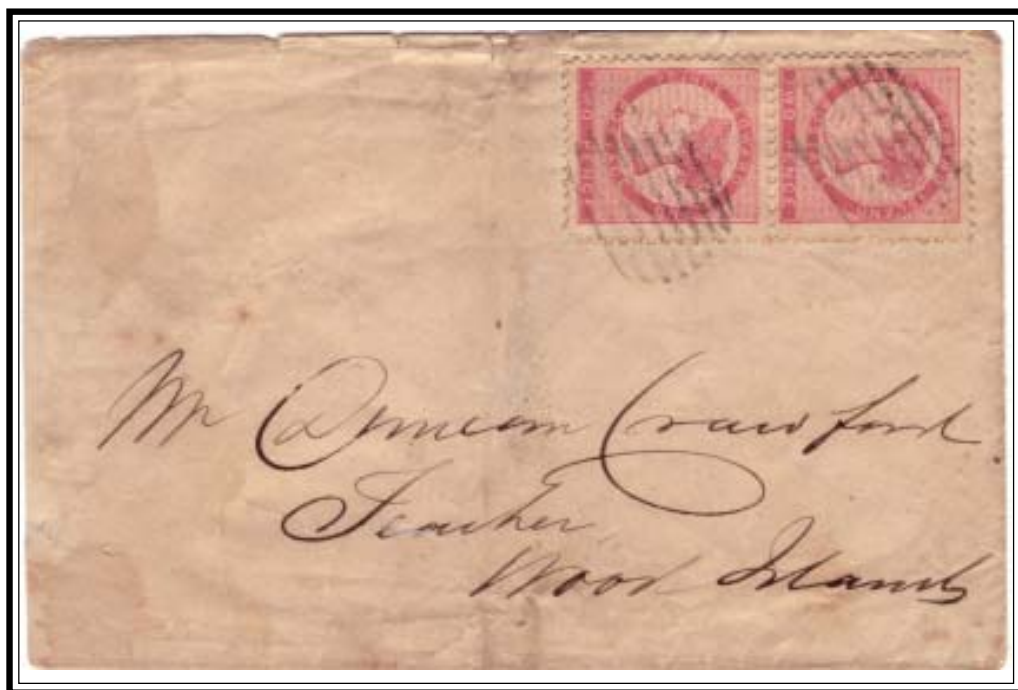 Mr Duncan Crawford
Teacher,
Wood Islands